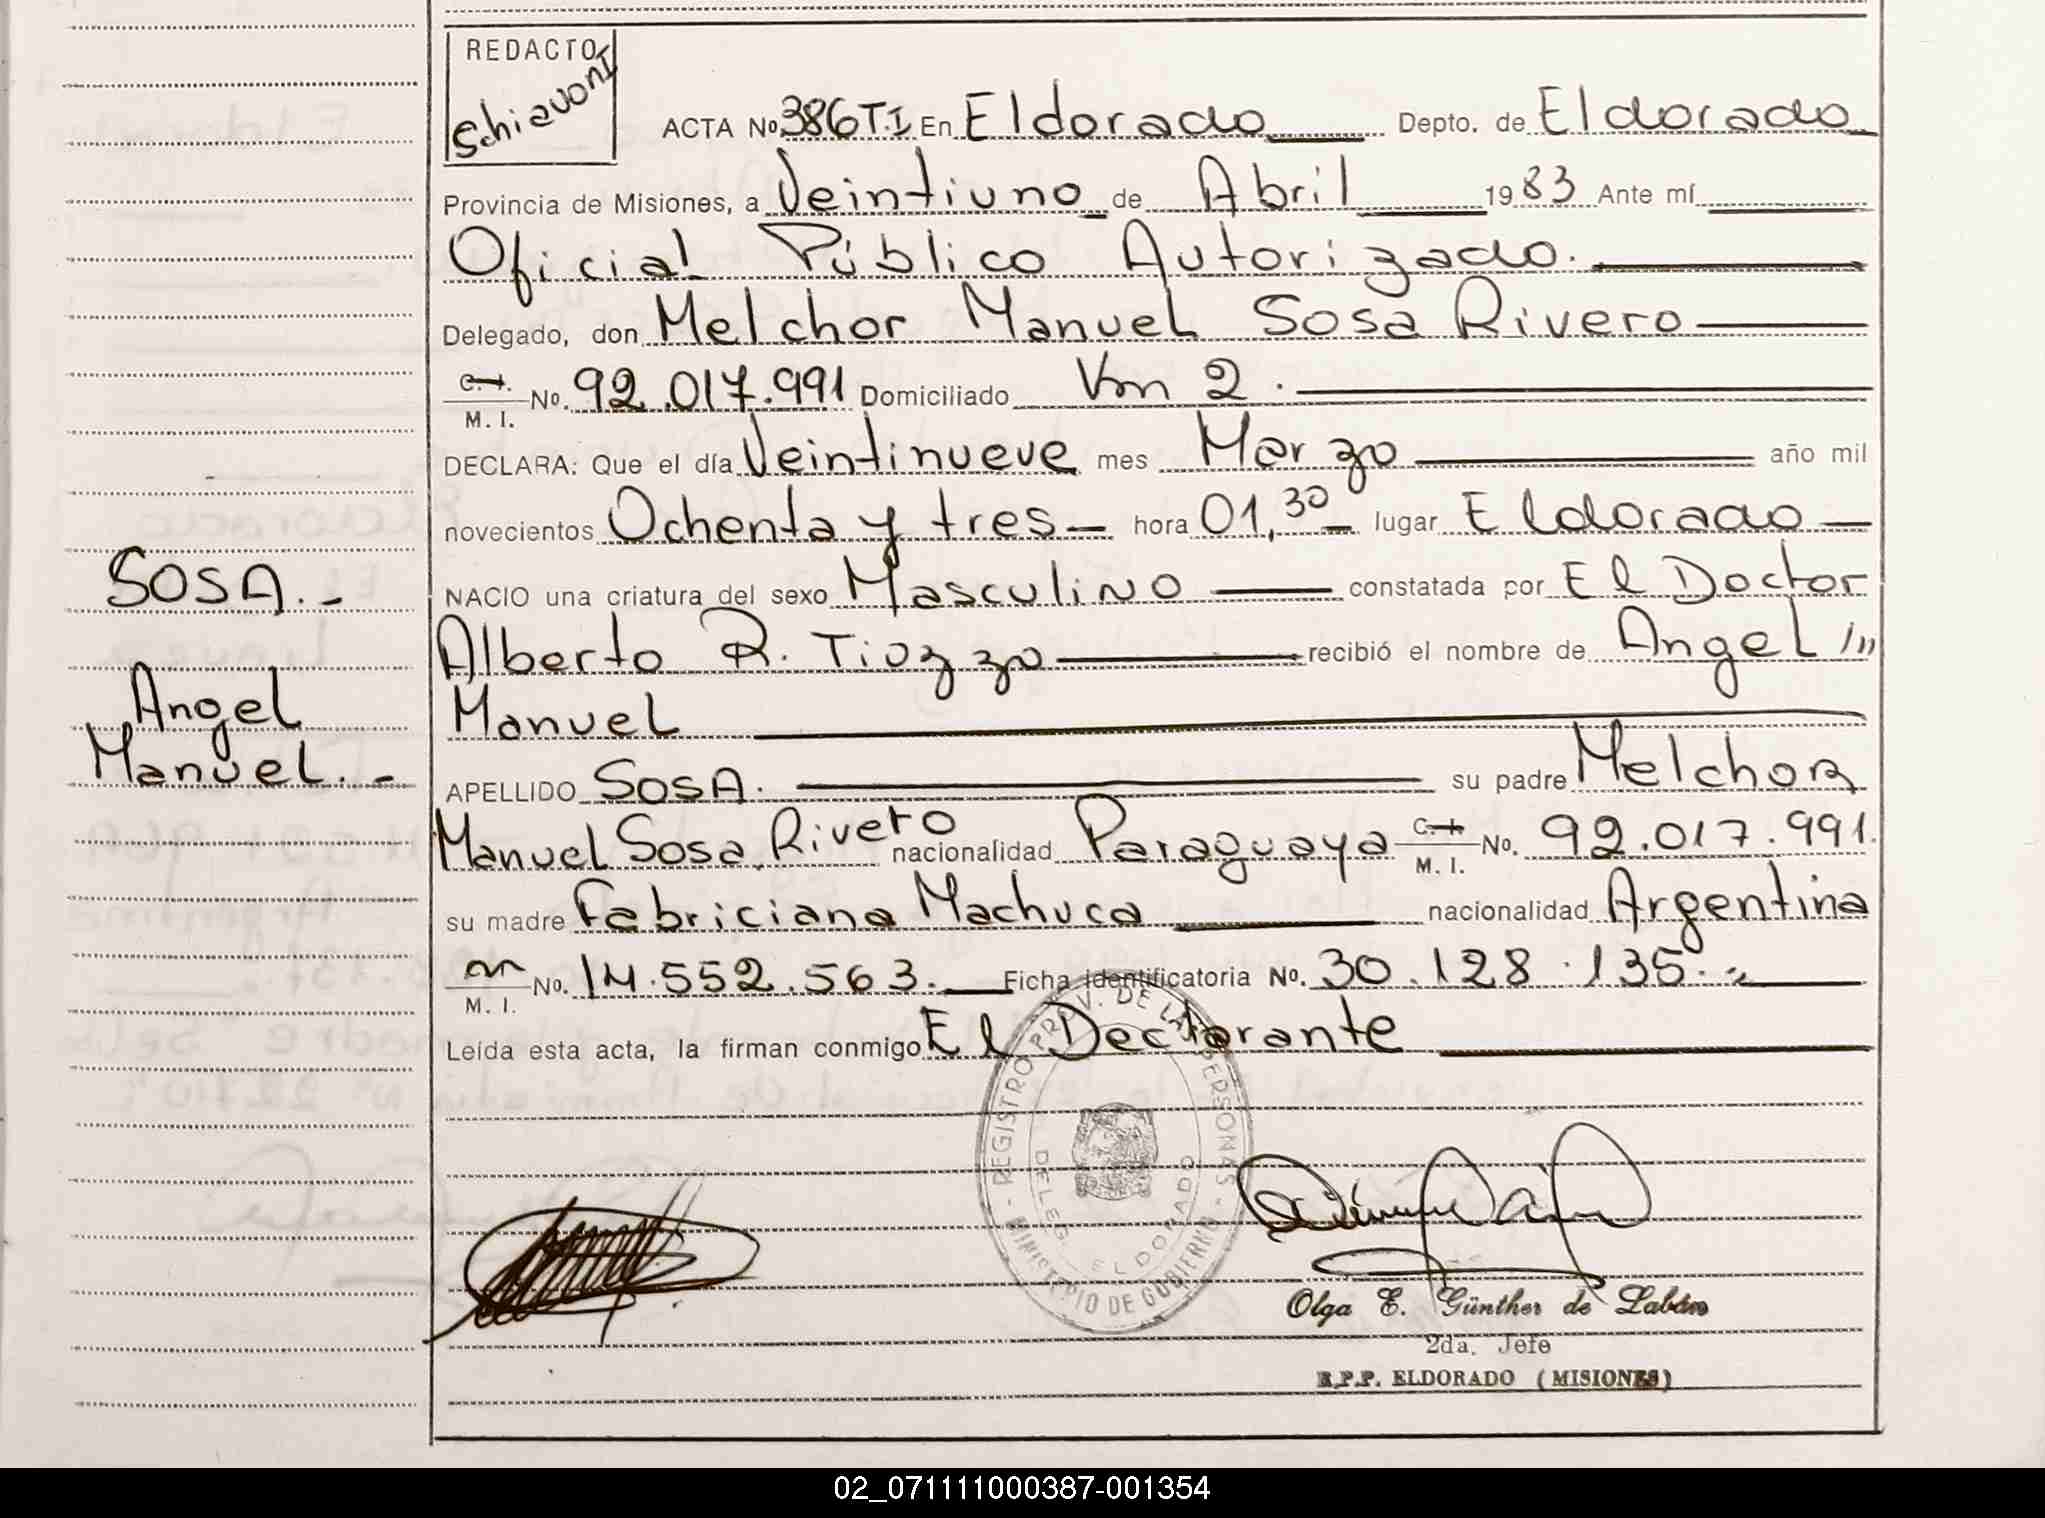 REDACTO
Schiavoni
ACTA No. 386 T.I En Eldorado Depto. de Eldorado
Provincia de Misiones, a Veintiuno de Abril 1983 Ante mí
Oficial Público Autorizado.
Delegado, don Melchor Manuel Sosa Rivero
C.I. M. I. No. 92.017.991 Domiciliado Km 2.
DECLARA: Que el día Veintinueve mes Marzo año mil
novecientos Ochenta y tres hora 01,30 lugar Eldorado
NACIO una criatura del sexo Masculino constatada por El Doctor
Alberto R. Tiozzo recibió el nombre de Angel
Manuel
APELLIDO SOSA. su padre Melchor
Manuel Sosa Rivero nacionalidad Paraguaya C.I. M. I. No. 92.017.991.
su madre Fabriciana Machuca nacionalidad Argentina
M. I. No. 14.552.563. Ficha identificatoria No. 30.128.135.
Leída esta acta, la firman conmigo El Declarante
SOSA.-
Angel
Manuel.-
REGISTRO PROV. DE LAS PERSONAS - MINISTERIO DE GOBIERNO -
DELEG. ELDORADO
Olga E. Günther de Labán
2da. Jefe
R.P.P. ELDORADO (MISIONES)
02_071111000387-001354